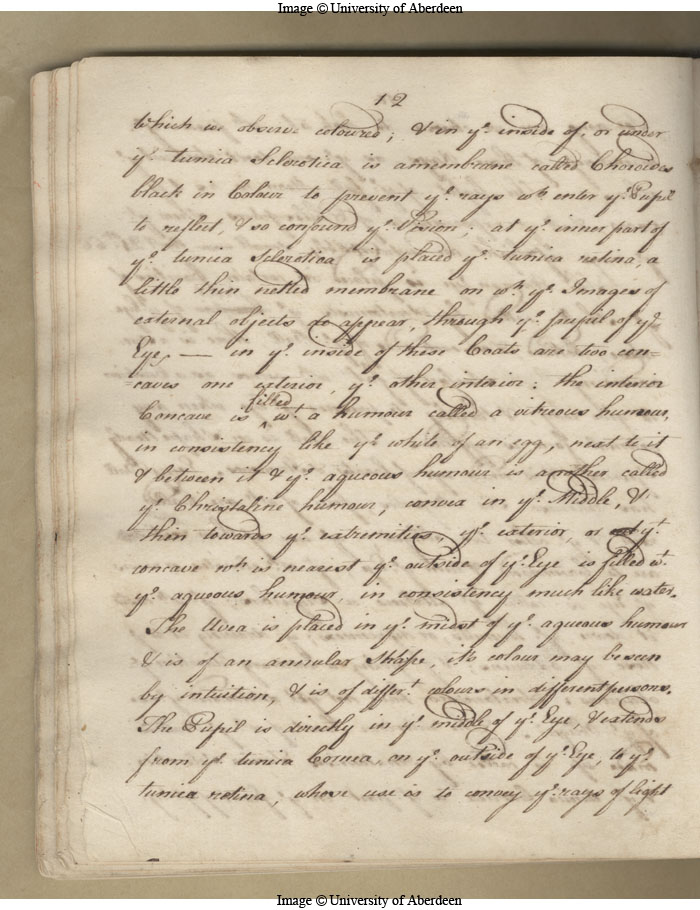 Image © University of Aberdeen
12
Which we observe coloured; & in ye. inside of, or under
ye. tunica Sclerotica is a membrane called Choroides
black in Colour to prevent ye. rays wh. enter ye. Pupil
to reflect, & so confound ye. Vision; at ye. inner part of
ye. tunica Sclerotica is placed ye. tunica retina, a
little thin netted membrane on wh. ye. Images of
external objects do appear, through ye. pupil of ye.
Eye, — in ye. inside of these Coats are two con=
=caves one exterior, ye. other interior: the interior
Concave is filled wt. a humour called a vitreous humour,
in consistency like ye. white of an egg, next to it
& between it & ye. aqueous humour is another called
ye. Chrystaline humour, convex in ye. Middle, &
thin towards ye. extremities, ye. exterior, or yt.
concave wh. is nearest ye. outside of ye. Eye is filled wt.
ye. aqueous humour, in consistency much like water.
The Uvea is placed in ye. midst of ye. aqueous humour
& is of an annular shape, its colour may be seen
by intuition, & is of differt. colours in different persons.
The Pupil is directly in ye. middle of ye. Eye, & extends
from ye. tunica Cornea, on ye. outside of ye. Eye, to ye.
tunica retina, whose use is to convey ye. rays of light
Image © University of Aberdeen